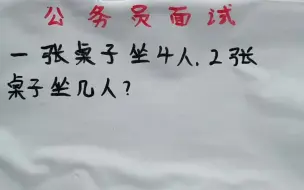 公务员面试
一张桌子坐4人.2张
桌子坐几人?